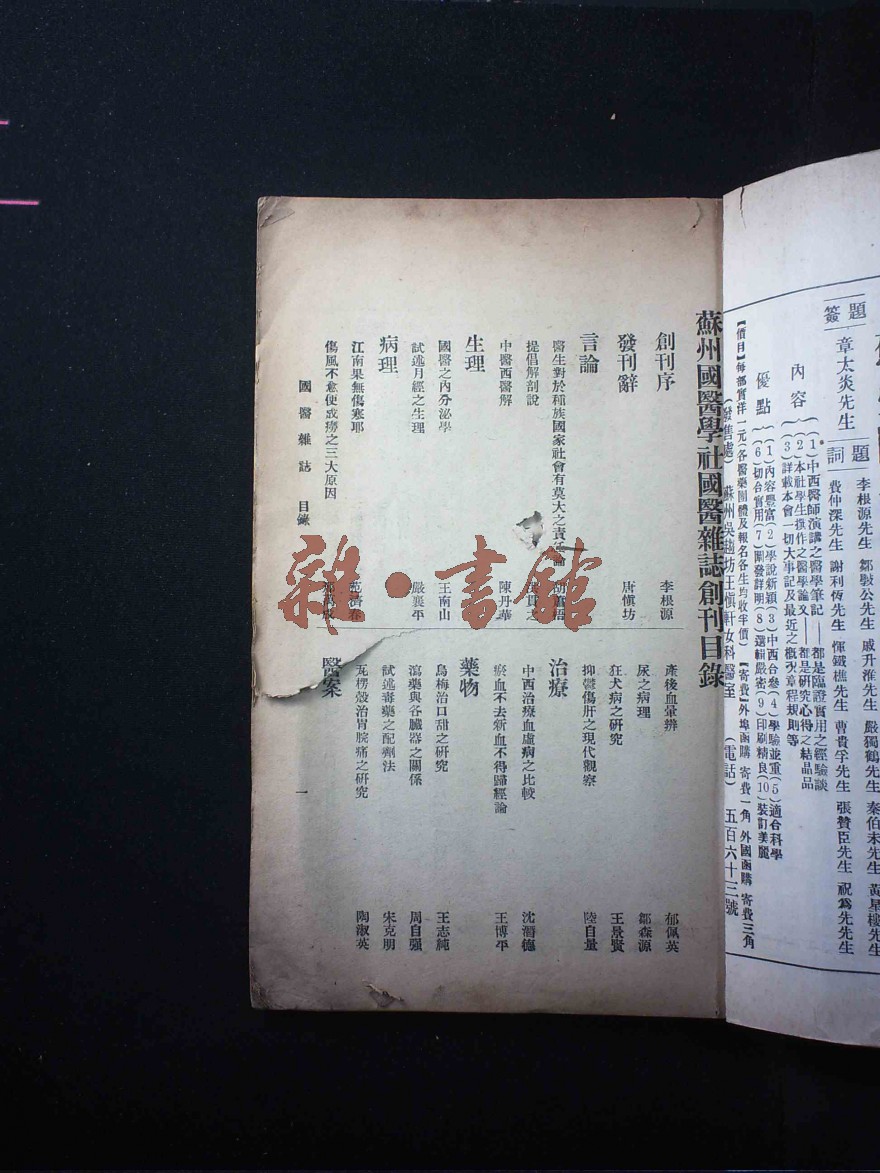 題簽
章太炎先生
題詞
李根源先生 鄒敭公先生 戚升淮先生 嚴獨鶴先生 秦伯未先生 黃星樓先生
費仲深先生 謝利恆先生 惲鐵樵先生 曹貴孚先生 張贊臣先生 祝為先先生
內容
(1)中西醫師演講之醫學筆記——都是臨證實用之經驗談
(2)本社學生撰作之醫學論文——都是研究心得之結晶品
(3)詳載本會一切大事記及最近之概況章程規則等
優點
(1)內容豐富(2)學說新穎(3)中西合參(4)學驗並重(5)適合科學
(6)切合實用(7)闡發詳明(8)選輯嚴密(9)印刷精良(10)裝訂美麗
【價目】每部實洋一元(各醫藥團體及報名各生均收半價) 【寄費】外埠函購 寄費一角 外國函購 寄費三角
(發售處) 蘇州吳趨坊王愼軒女科醫室 (電話) 五百六十三號
蘇州國醫學社國醫雜誌創刊目錄
創刊序 李根源
發刊辭 唐愼坊
言論
醫生對於種族國家社會有莫大之責任論
提倡解剖說
中醫西醫解 陳丹華
生理
國醫之內分泌學 王南山
試述月經之生理 嚴襄平
病理
江南果無傷寒耶
傷風不愈便成癆之三大原因
產後血暈辨 郁佩英
尿之病理 鄒森源
狂犬病之研究 王景賢
抑鬱傷肝之現代觀察 陸自量
治療
中西治療血虛病之比較 沈潛德
瘀血不去新血不得歸經論 王博平
藥物
烏梅治口甜之研究 王志純
瀉藥與各臟器之關係 周自强
試述毒藥之配劑法 宋克明
瓦楞殼治胃脘痛之研究 陶淑英
醫案
國醫雜誌 目錄
一
雜·書館